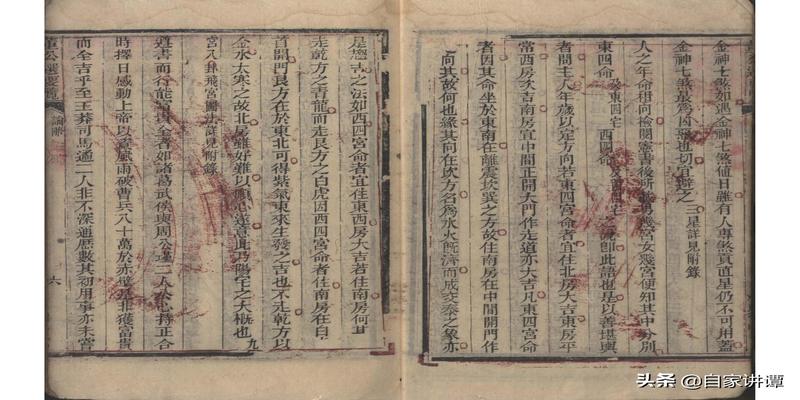 金神七煞如遇金神七煞值日雖有人專煞貢直星仍不可用蓋
金神七煞最為凶惡也切宜避之 三星詳見附錄
人之年命相向檢閱憲書後所載男幾宮女幾宮便知其中分別
東四命 及東四宅 西四命 及西四宅 之說即此語也是以善堪輿
者問主人年歲以定方向若東四宮命者宜住北房大吉東房平
常西房次吉南房宜中間正開大門作走道亦大吉凡東四宮命
者因其命坐於東南在離震坎巽之方故住南房在中間開門作
向其故何也緣其向在坎方名為水火既濟而成交泰之象亦
是趨吉之法如西四宮命者宜住東西房大吉若住南房何
走乾方之青龍而走艮方之白虎因西四宮命者住南房在自
首開門艮方在於東北可得紫氣東來生發之吉也不走乾方以
金水太寒之故北房雖好難以順心遂意此乃陽宅之大概也
宮八卦飛宮圖法詳見附錄
九
遵書而行能富貴全者如諸葛武侯與周公瑾二人公心持正合
時擇日感動上帝以霧風雨破曹兵八十萬於赤壁是非獲富貴
而全吉乎至王莽司馬遹二人非不深通曆數其初用事亦未嘗
董公選要覽
論斷
六
头条 @自家讲谭